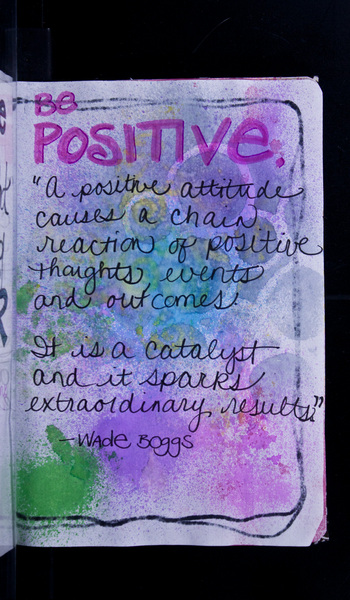 Be
POSITIVE.
"A positive attitude
causes a chain
reaction of positive
thoughts, events
and outcomes.
It is a catalyst
and it sparks
extraordinary results."
—WADE BOGGS